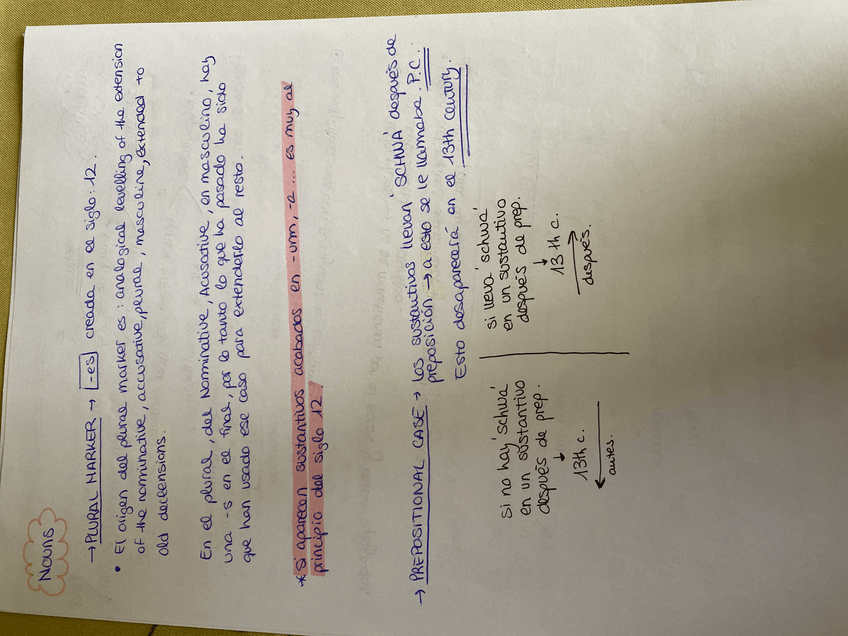 Nouns
→ PLURAL MARKER → -es creada en el siglo: 12.
• El origen del plural marker es: analogical levelling of the extension
of the nominative, accusative, plural, masculine, extended to
old declensions.
En el plural, del Nominative, Acusative, en masculino, hay
una -s en el final, por lo tanto lo que ha pasado ha sido
que han usado ese caso para extenderlo al resto.
* Si aparecen sustantivos acabados en -um, -a ... es muy al
principio del siglo 12.
→ PREPOSITIONAL CASE → los sustantivos llevan 'SCHWA' después de
preposición → a esto se le llamaba P.C.
Esto desaparecerá en el 13th century.
si no hay 'schwa'
en un sustantivo
después de prep.
↓
13th c.
←
antes.
si lleva 'schwa'
en un sustantivo
después de prep.
↓
13th c.
→
después.